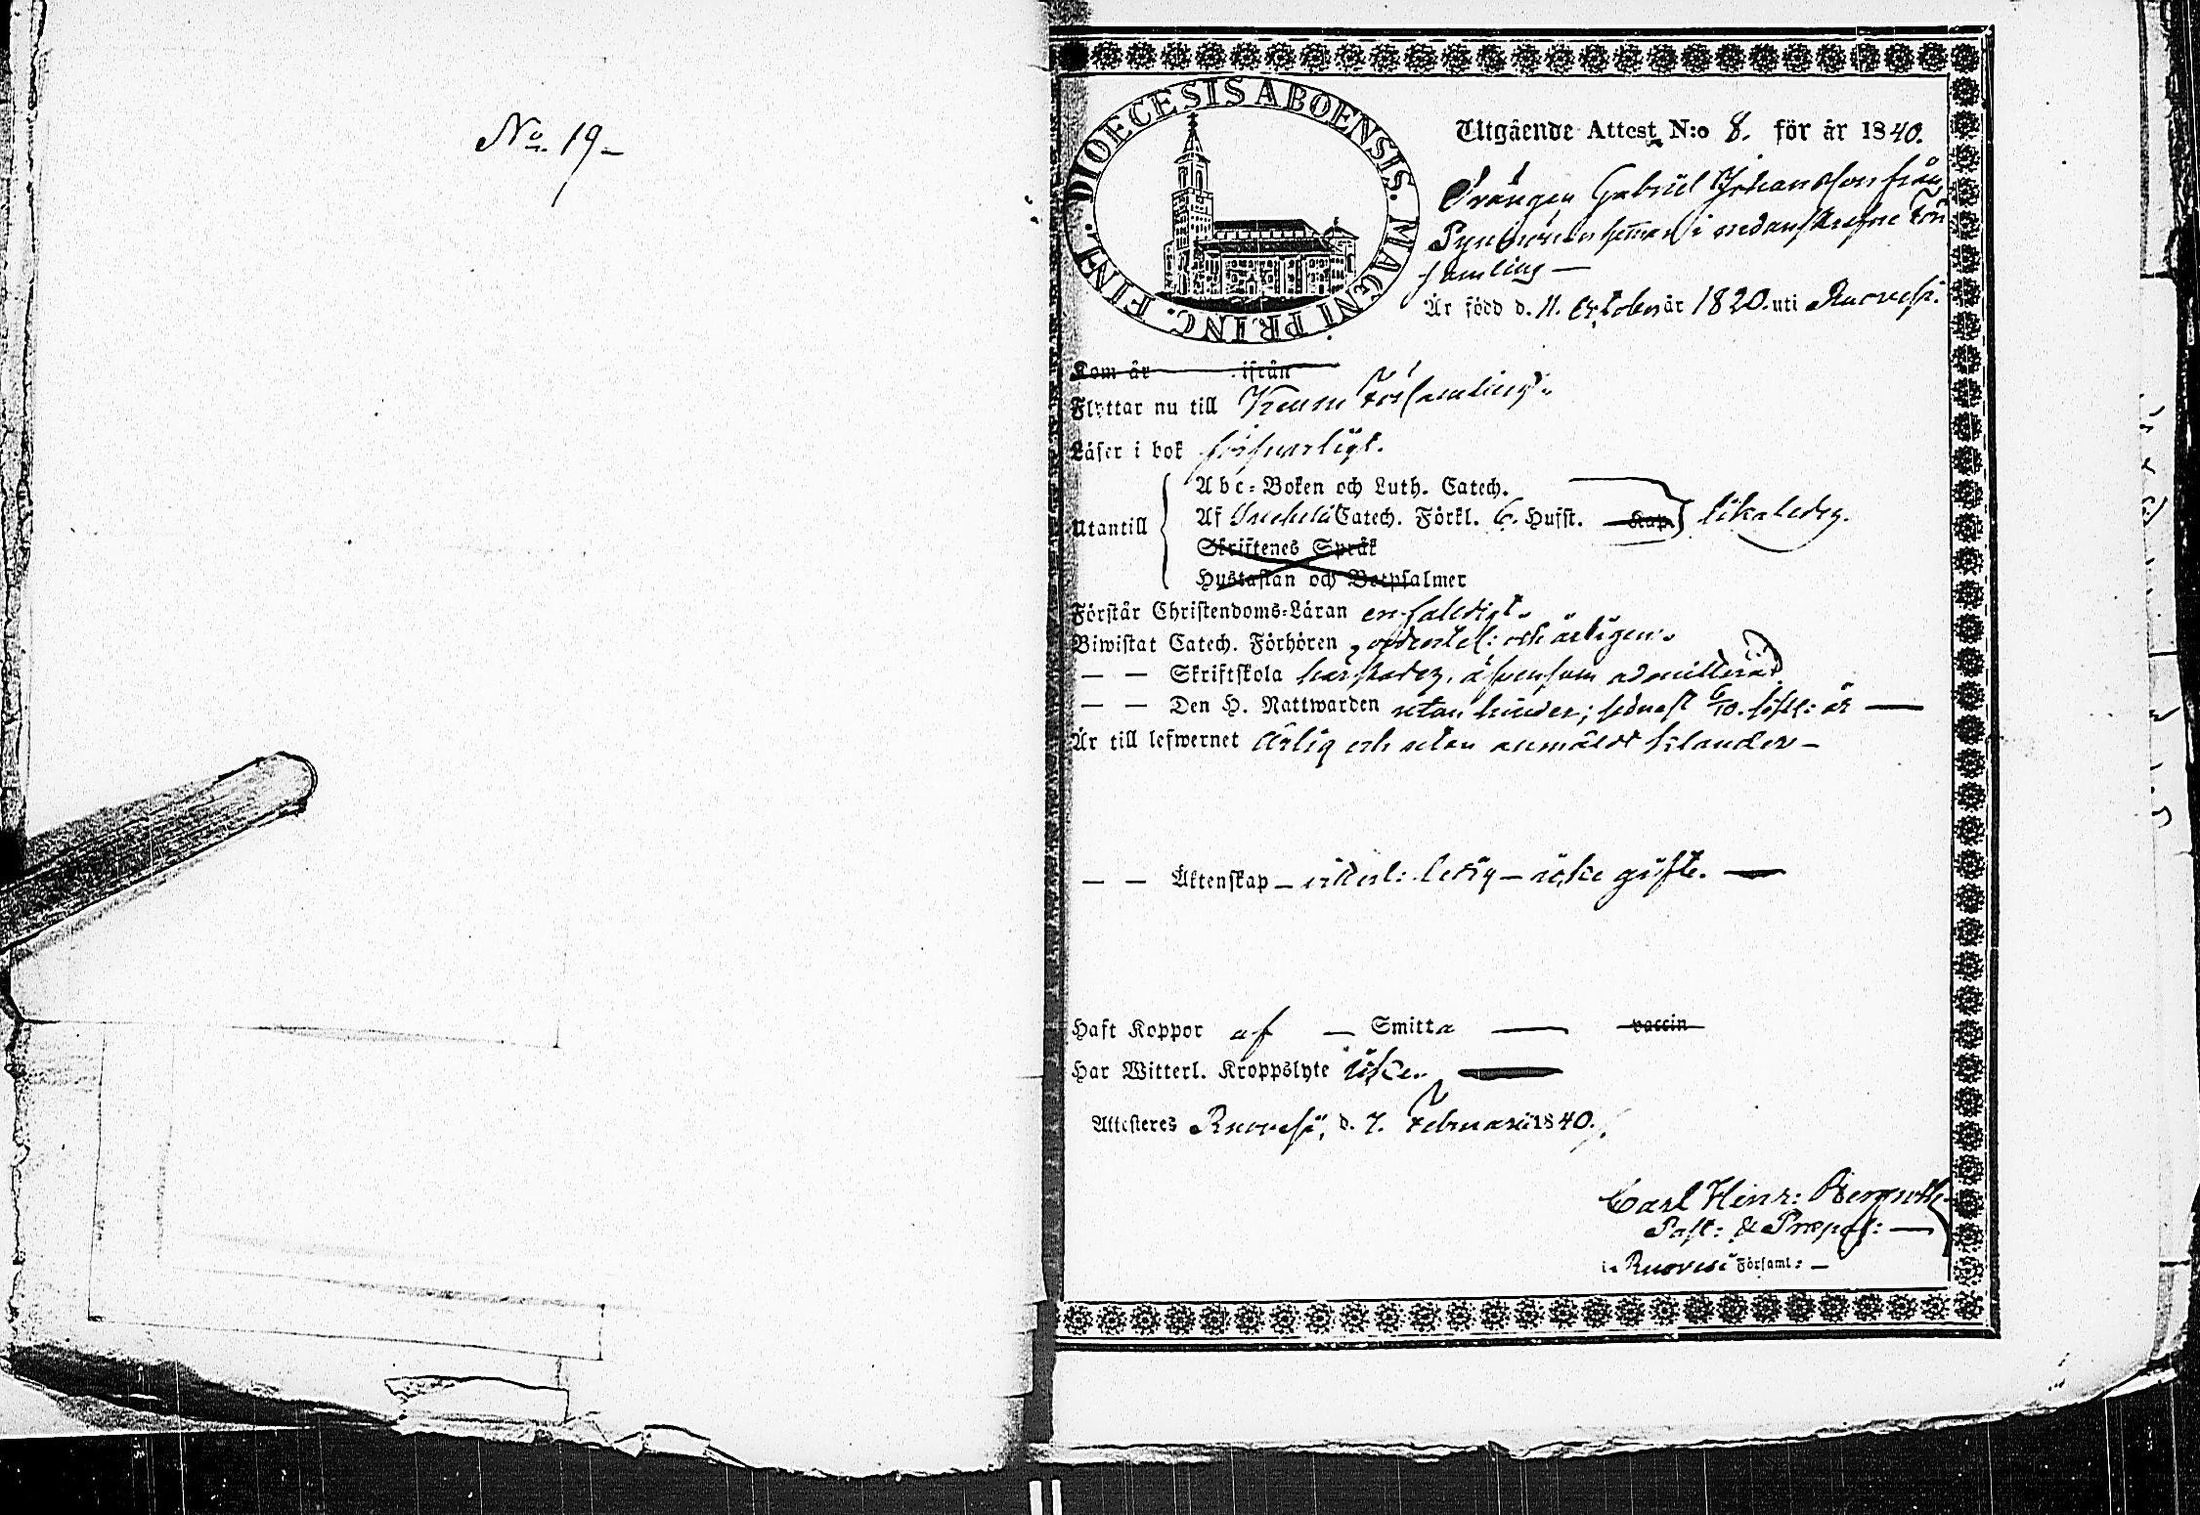 No. 19 –
DIOECESIS ABOENSIS. MAGNI PRINC. FINL.
Utgående Attest N:o 8. för år 1840.
Drängen Gabriel Johansson från
hemman i nedanskrefne För
samling —
Är född d. 11. October år 1820. uti Ruovesi.
Kom år ifrån
Flyttar nu till Församling.
Läser i bok försvarligt.
Abc-Boken och Luth. Catech.
Utantill Af Catech. Förkl. 6. Hufst. Kap. likaledes.
Skriftenes Språk
Hustaflan och Botpsalmer
Förstår Christendoms-Läran enfaldigt.
Biwistat Catech. Förhören, ordentel: och årligen.
— — Skriftskola härstädes, äfvensom admitterad
— — Den H. Nattwarden utan hinder; sednast 6/10. sistl: år —
Är till lefwernet ärlig och utan anmäldt klander –
— — Äktenskap – vitterl: ledig – icke gifte. —
Haft Koppor af — Smitta — vaccin
Har Witterl. Kroppslyte icke. —
Attesteres Ruovesi, d. 7. Februarii 1840.
Carl Henr: Bergroth
Past: & Præpos: —
i Ruovesi Församl: –